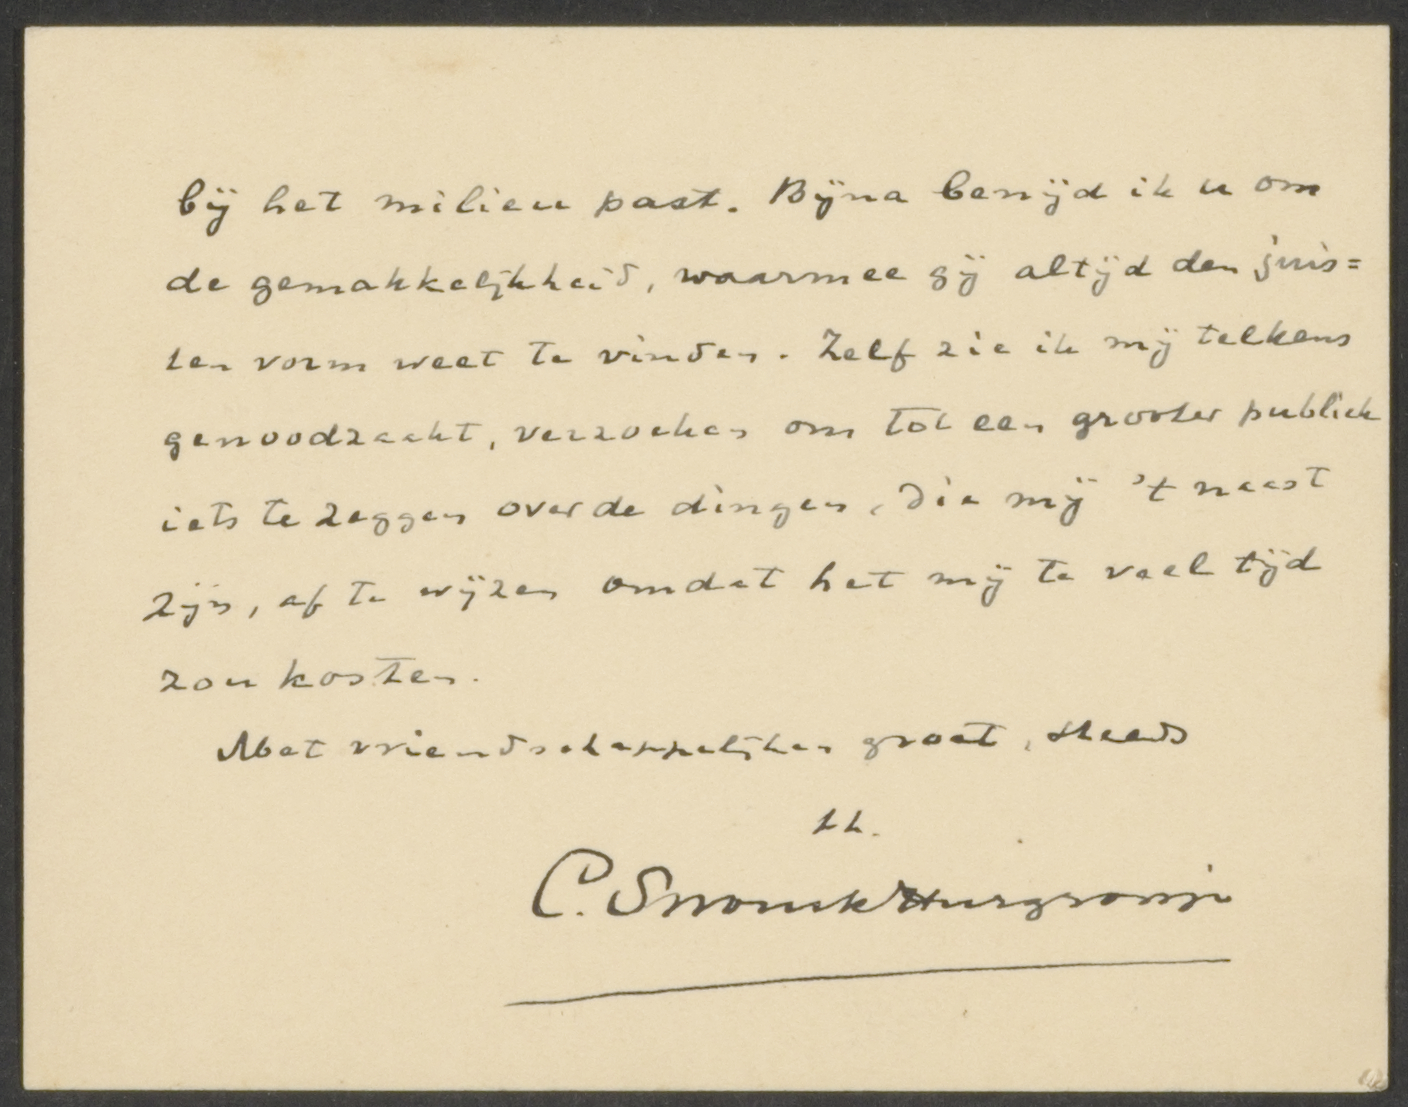 bij het milieu past. Bijna benijd ik u om
de gemakkelijkheid, waarmee gij altijd den juis=
ten vorm weet te vinden. Zelf zie ik mij telkens
genoodzaakt, verzoeken om tot een grooter publiek
iets te zeggen over de dingen, die mij 't naast
zijn, af te wijzen omdat het mij te veel tijd
zou kosten.
Met vriendschappelijken groet, steeds
tt.
C. Snouck Hurgronje